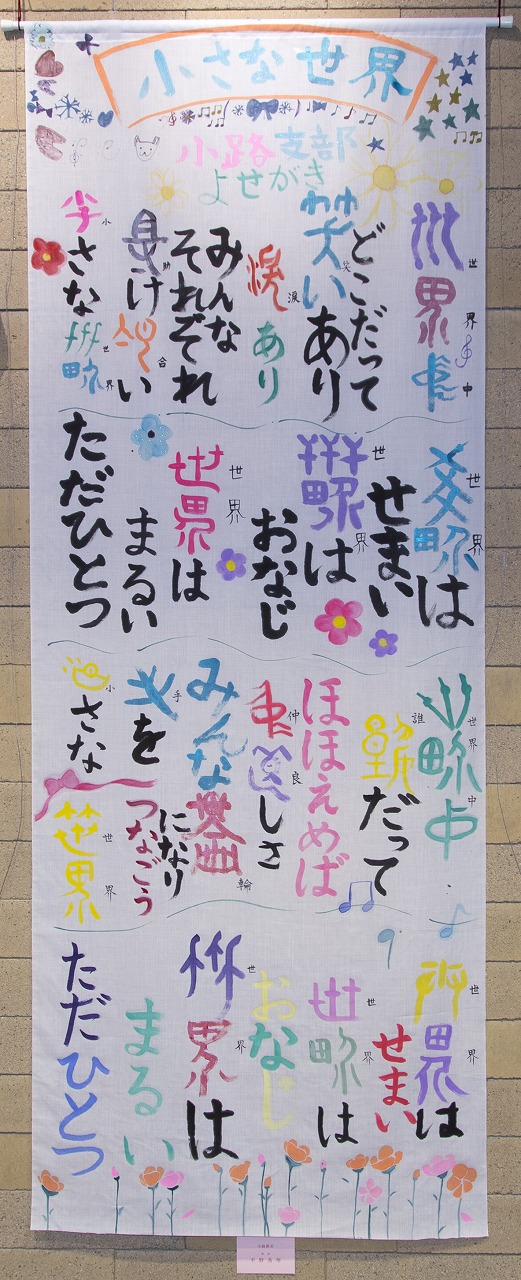 小さな世界
小路支部
よせがき
世界中
どこだって
笑いあり
涙あり
みんな
それぞれ
助け合い
小さな世界
世界は
せまい
世界は
おなじ
世界は
まるい
ただひとつ
世界中
誰だって
ほほえめば
仲良しさ
みんな輪
になり
手を
つなごう
小さな世界
世界は
せまい
世界は
おなじ
世界は
まるい
ただひとつ